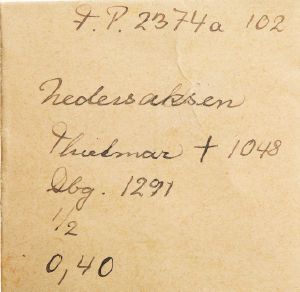 F.P. 2374a 102
Nedersaksen
Thietmar † 1048
Dbg. 1291
1/2
0,40